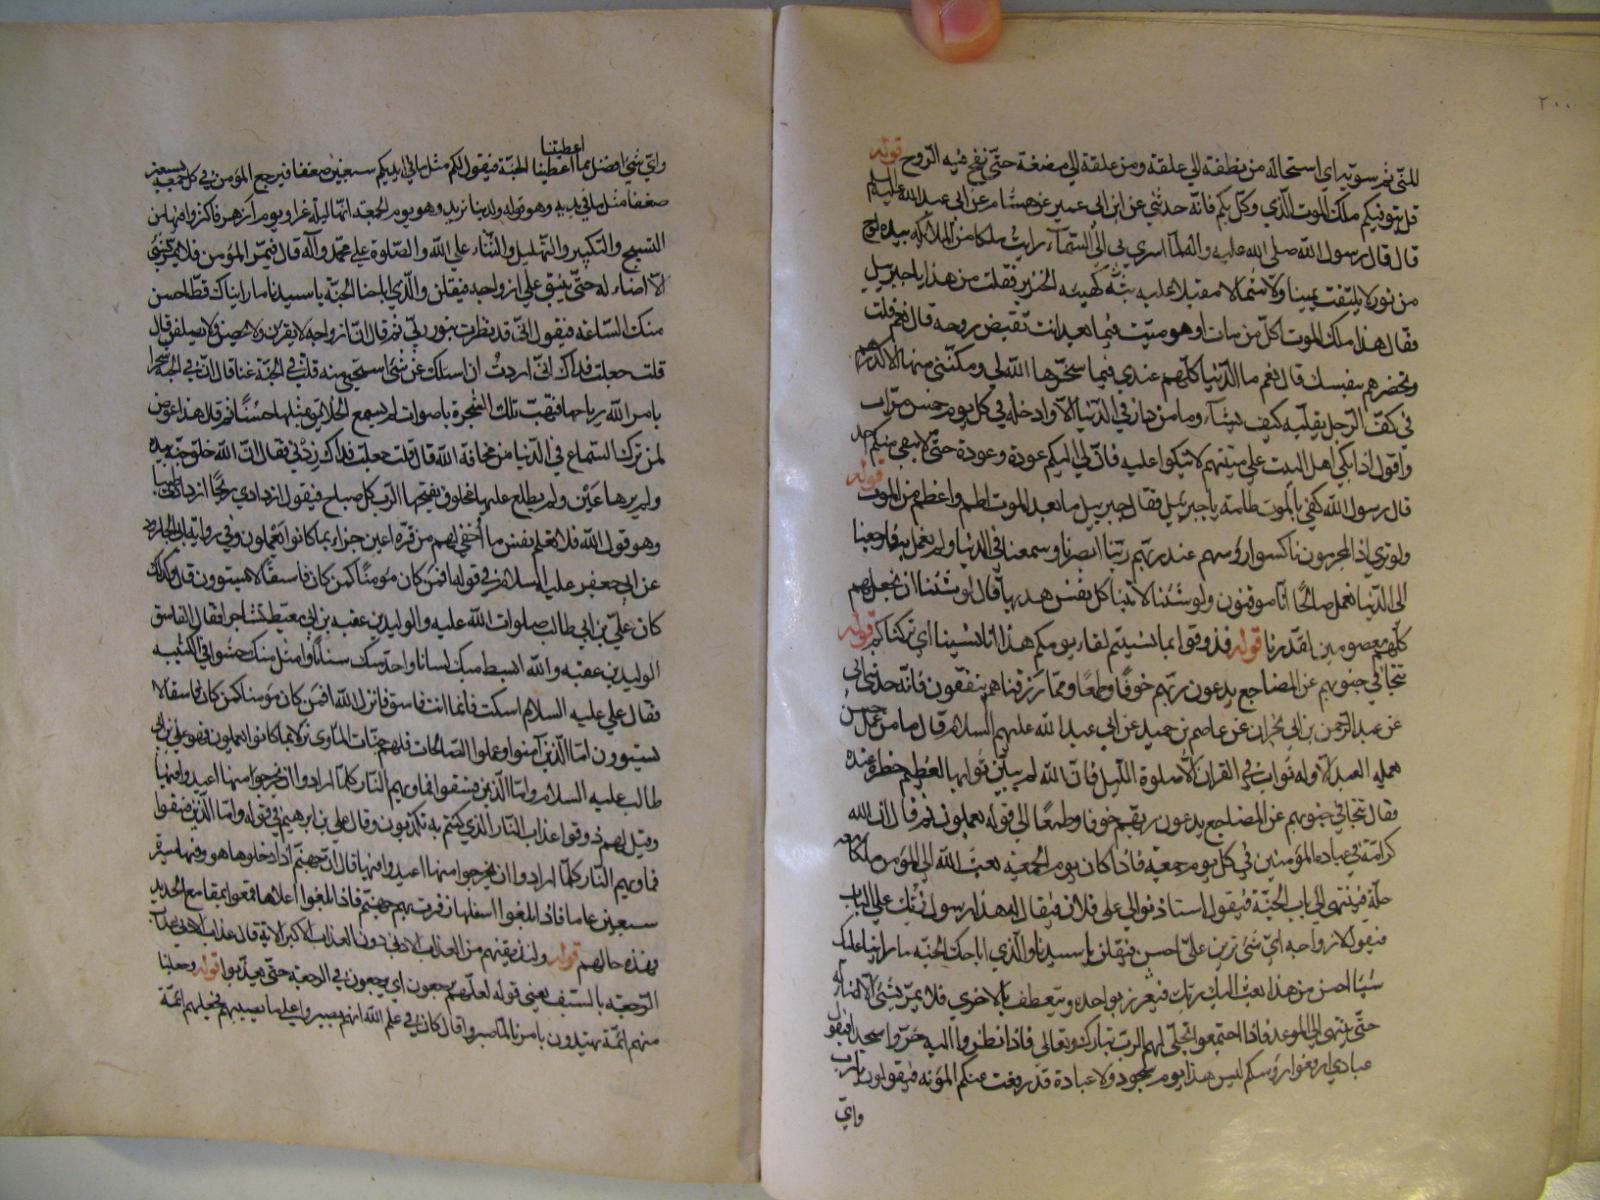 ٢٠٠
للمني ثم سويه اي استحاله من نطفة الي علقة ومن علقة الي مضغة حتي نفخ فيه الروح قوله
قل يتوفيكم ملك الموت الذي وكل بكم فانه حدثني عن ابن ابي عمير عن هشام عن ابي عبد الله عليه السلم
قال قال رسول الله صلي الله عليه واله لما اسري بي الي السماء رايت ملكا من الملائكه بيده لوح
من نور لا يلتفت يمينا ولا شمالا مقبلا عليه كهيئه الحزين فقلت من هذا يا جبرييل
فقال هذا ملك الموت اكل من مات او هو ميت فيما بعد انت تقبض روحه قال نعم قلت
وتحضرهم بنفسك قال نعم ما الدنيا كلهم عندي فيما سخرها الله لي ومكنني منها الا كالدرهم
في كف الرجل يقلبه كيف يشاء وما من دار في الدنيا الا وادخلها في كل يوم خمس مرات
واقول اذا بكي اهل البيت علي ميتهم لا تبكوا عليه فان لي اليكم عودة وعودة حتي لا يبقي منكم احد
قال رسول الله كفي بالموت طامة يا جبرييل فقال جبرييل ما بعد الموت اطم واعظم من الموت قوله
ولو تري اذ المجرمون ناكسوا رؤسهم عند ربهم ربنا ابصرنا وسمعنا في الدنيا ولم نعمل به فارجعنا
الي الدنيا نعمل صالحًا انا موقنون ولو شئنا لاتينا كل نفس هديها قال لو شئنا ان نجعلهم
كلهم معصومين لقدرنا قوله فذوقوا بما نسيتم لقاء يومكم هذا انا نسيناكم اي تركناكم قوله
تتجافي جنوبهم عن المضاجع يدعون ربهم خوفًا وطمعًا ومما رزقناهم ينفقون فانه حدثني ابي
عن عبد الرحمن بن ابي نجران عن عاصم بن حميد عن ابي عبد الله عليهم السلام قال ما من عمل حسن
يعمله العبد الا وله ثواب في القران الا صلوة الليل فان الله لم يبين ثوابها لعظيم خطره عنده
فقال تتجافي جنوبهم عن المضاجع يدعون ربهم خوفا وطمعًا الي قوله يعملون ثم قال ان لله
كرامة في عباده المؤمنين في كل يوم جمعة فاذا كان يوم الجمعة بعث الله الي المؤمن ملكا معه
حلة فينتهي الي باب الجنة فيقول استاذنوا لي علي فلان فيقال له هذا رسول ربك علي الباب
فيقول لازواجه اي شئ ترين علي احسن فيقلن يا سيدنا والذي اباحك الجنه ما راينا عليك
شيئا احسن من هذا بعث اليك ربك فيتزر بواحدة ويتعطف بالاخري فلا يمر بشئ الا اضاء له
حتي ينتهي الي الموعد فاذا اجتمعوا تجلي لهم الرب تبارك وتعالي فاذا نظروا اليه خروا سجدا فيقول
عبادي ارفعوا رؤسكم ليس هذا يوم سجود ولا عبادة قد رفعت عنكم المؤنه فيقولون يا رب
واي
اعطيتنا
واي شئ افضل مما اعطيتنا الجنة فيقول لكم مثل ما في ايديكم سبعين ضعفا فيرجع المؤمن في كل جمعة بسبعين
ضعفا مثل ما في يديه وهو قوله ولدينا مزيد وهو يوم الجمعة انها ليلة غرا ويوم ازهر فاكثروا فيها من
التسبيح والتكبير والتهليل والثناء علي الله والصلوة علي محمد واله قال فيمر المؤمن فلا يمر بشئ
الا اضاء له حتي ينتهي علي ازواجه فيقلن والذي اباحنا الجنة يا سيدنا ما رايناك قط احسن
منك الساعة فيقول اني قد نظرت بنور ربي ثم قال ان ازواجه لا يغرن ولا يحضن ولا يصلفن قال
قلت جعلت فداك اني اردت ان اسئلك عن شئ استحيي منه قلت في الجنة غنا قال ان في الجنة شجرا
يامر الله رياحها فتهب تلك الشجرة باصوات لم يسمع الخلائق بمثلها حسنًا ثم قال هذا عوض
لمن ترك السماع في الدنيا من مخافة الله قال قلت جعلت فداك زدني فقال ان الله خلق جنة بيده
ولم يرها عين ولم يطلع عليها مخلوق يفتحها الرب كل صباح فيقول ازدادي ريحًا ازدادي طيبا
وهو قول الله فلا تعلم نفس ما اخفي لهم من قرة اعين جزاء بما كانوا يعملون وفي رواية ابي الجارود
عن ابي جعفر عليه السلام في قوله افمن كان مؤمنًا كمن كان فاسقًا لا يستوون قال وذلك
كان علي بن ابي طالب صلوات الله عليه والوليد بن عقبه بن ابي معيط تشاجرا فقال الفاسق
الوليد بن عقبه والله ابسط منك لسانا واحد منك سنانًا وامثل منك جثوا في الكتيبه
فقال علي عليه السلام اسكت فانما انت فاسق فانزل الله افمن كان مؤمنا كمن كان فاسقا لا
يستوون اما الذين آمنوا وعملوا الصالحات فلهم جنات الماوي نزلا بما كانوا يعملون فهو علي بن ابي
طالب عليه السلام واما الذين فسقوا فماويهم النار كلما ارادوا ان يخرجوا منها اعيدوا فيها
وقيل لهم ذوقوا عذاب النار الذي كنتم به تكذبون وقال علي بن ابرهيم في قوله واما الذين فسقوا
فماويهم النار كلما ارادوا ان يخرجوا منها اعيدوا فيها قال ان جهنم اذا دخلوها هووا فيها مسيرة
سبعين عاما فاذا بلغوا اسفلها زفرت بهم جهنم فاذا بلغوا اعلاها قمعوا بمقامع الحديد
فهذه حالهم قوله ولنذيقنهم من العذاب الادني دون العذاب الاكبر الاية قال عذاب الادني عذاب
الرجعة بالسيف يعني قوله لعلهم يرجعون اي يرجعون في الرجعة حتي يعذبوا قوله وجعلنا
منهم ائمة يهتدون بامرنا لما صبروا قال كان في علم الله انهم يصبروا علي ما يصيبهم فجعلهم ائمة